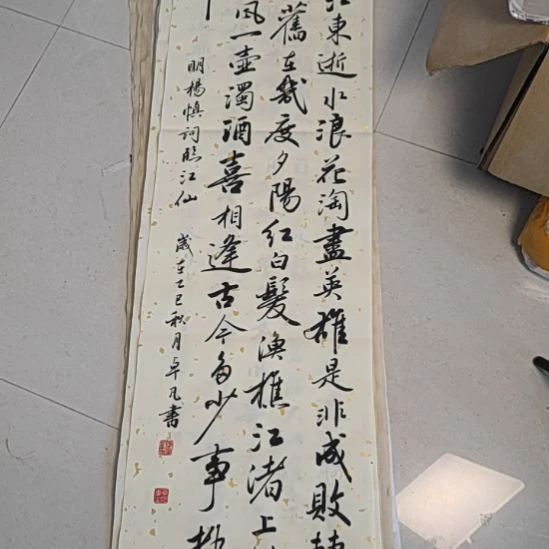 東逝水浪花淘盡英雄是非成敗轉
舊在幾度夕陽紅白髮漁樵江渚上
風一壺濁酒喜相逢古今多少事
明楊慎詞臨江仙 歲在乙巳秋月卓凡書